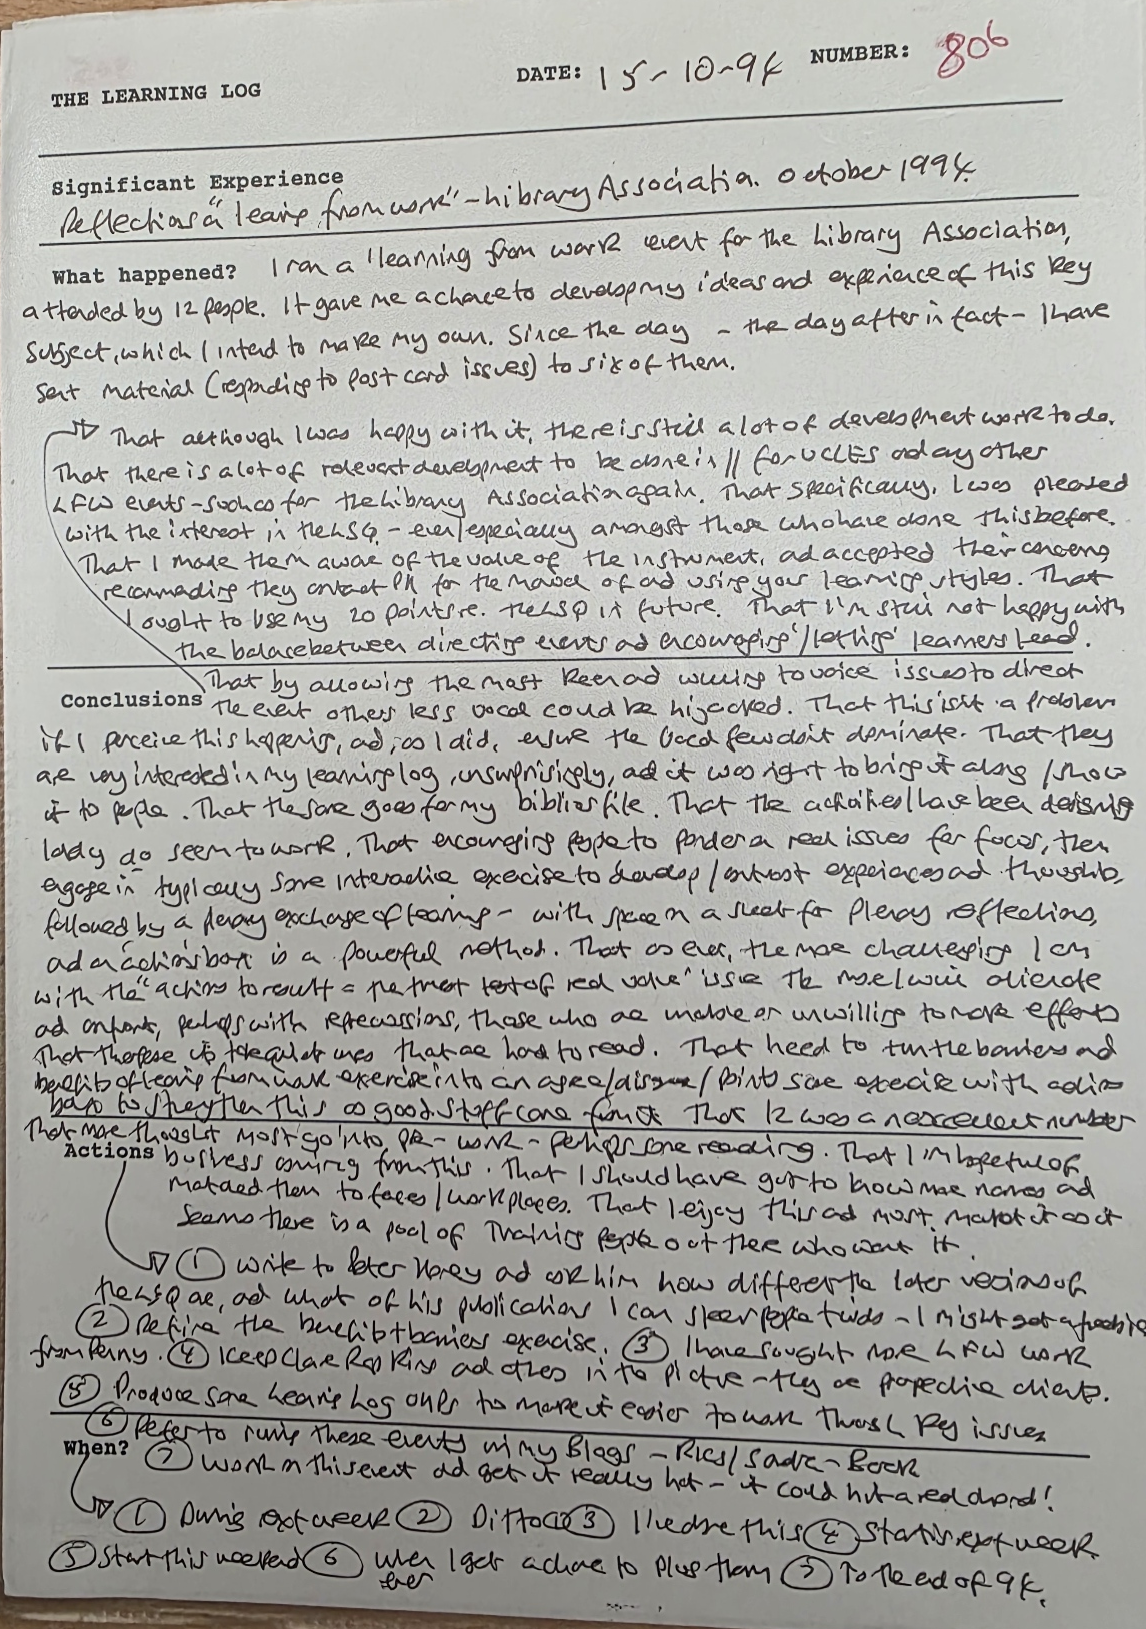 THE LEARNING LOG DATE: 15-10-94 NUMBER: 806
Significant Experience
Reflections on "learning from work" - Library Association. October 1994.
What happened? I ran a 'learning from work event for the Library Association,
attended by 12 people. It gave me a chance to develop my ideas and experience of this key
subject, which I intend to make my own. Since the day - the day after in fact - I have
sent material (responding to post card issues) to six of them.
That although I was happy with it, there is still a lot of development work to do.
That there is a lot of relevant development to be done in // for UCLES and any other
LFW events - such as for the Library Association again. That specifically, I was pleased
with the interest in the LSQ - even/especially amongst those who have done this before.
That I made them aware of the value of the instrument, and accepted their concerns,
recommending they contact PH for the manual of and using your learning styles. That
I ought to use my 20 points re. the LSQ in future. That I'm still not happy with
the balance between directing events and encouraging/'letting' learners lead.
Conclusions That by allowing the most keen and willing to voice issues to direct
the event others less vocal could be hijacked. That this isn't a problem
if I perceive this happening, and, as I did, ensure the vocal few don't dominate. That they
are very interested in my learning log, unsurprisingly, and it was right to bring it along/show
it to people. That the same goes for my file. That the activities I have been designing
lately do seem to work. That encouraging people to ponder on real issues for focus, then
engage in typically some interactive exercise to develop/contrast experiences and thoughts,
followed by a plenary exchange of learning - with space on a sheet for plenary reflections,
and an actions box is a powerful method. That as ever, the more challenging I am
with the "actions to result = the truest test of real value" issue the more I will alienate
and confront, perhaps with repercussions, those who are unable or unwilling to make efforts
That these are that are hard to read. That need to turn the barriers and
benefits of learning from work exercise into an agree/disagree/points some exercise with action
to strengthen this as good stuff came from it. That 12 was an excellent number
That more thought must go into pre-work - perhaps some reading. That I'm hopeful of
Actions business coming from this. That I should have got to know more names and
matched them to faces/workplaces. That I enjoy this and must market it as it
seems there is a pool of Training people out there who want it.
① Write to Peter Honey and ask him how different the later versions of
the LSQ are, and what of his publications I can steer people towards - I might get a freebie
② Refine the benefit + barriers exercise. ③ I have sought more LFW work
from Penny. ④ Keep Clare and others in the picture - they are prospective clients.
⑤ Produce some Learning Log OHPs to make it easier to work through key issues
⑥ Refer to running these events in my Blogs - - Book
When? ⑦ Work on this event and get it really hot - it could hit a red chord!
① During next week ② Ditto ③ I have done this ④ Starting next week
⑤ Start this weekend ⑥ When ever I get a chance to plug them ⑦ To the end of 94.